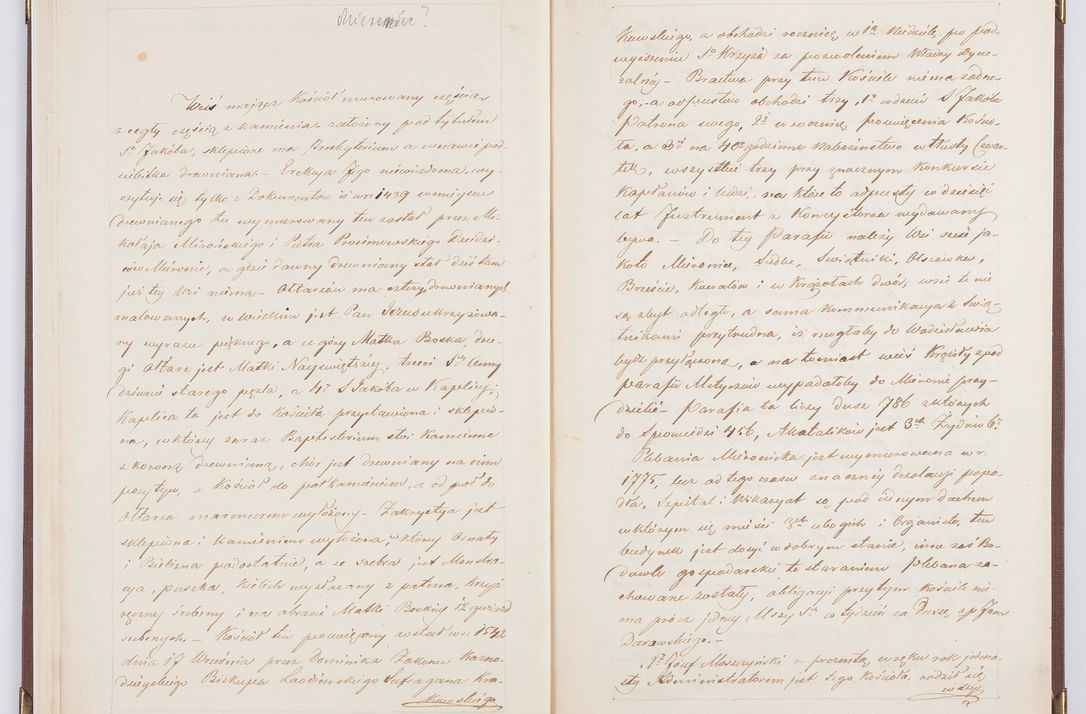 Mieronice?
Wieś mająca Kościół murowany częścią
z cegły częścią z kamienia – założony pod tytułem
Sº Jakóba, sklepione ma Presbyterium a w nawie pod-
niebitka drewniana. – Erekcya Jego niewiadoma, wy-
czytuje się tylko z Dokumentów iż w r: 1439 w miejscu
drewnianego tu wymurowany ten został przez Mi-
kołaja Mirońskiego i Piotra Dziedzi-
ców Mironic, a gdzie dawny drewniany stał dziś tam
już tey wsi nima – Ołtarzów ma cztery drewnianych
malowanych, w wielkim jest Pan Jezus ukrzyżowa-
ny wyrazu pięknego, a u góry Matka Boska, dru-
gi Ołtarz jest Matki Najświętszéj, trzeci Sº Anny
dziwnie starego pęzla, a 4º S Jakóba w Kaplicy;
Kaplica ta jest do Kościoła przystawiona i sklepio-
na, w któréj zaraz Baptisterium stoi Kamienne
z koroną drewnianą, chór jest drewniany na nim
pozytyw, a Kościół do pół kamieniem, a od pół do
Ołtarza marmurem wyłożony – Zakrystya jest
sklepiona i kamieniem wyłożona w któréj Ornaty
i Bielizna podostatnie, a ze srebra jest Monstra-
cya, puszka, Kielich wyzłacany z pateną, krzyż
ręczny srebrny i na obrazie Matki Boskiéj 12 gwiazd
srebrnych. – Kościół ten poświęcony został w r: 1542
dnia 17 Września przez Dominika Zakonu Kazno-
dziejskiego Biskupa Laodicenskiego Sufragana Kra-
kowskiego
kowskiego, a obchodzi rocznicę w 1ą Niedzielę po pod-
wyższeniu Sº Krzyża za pozwoleniem Władzy Dyece-
zalnéj – Bractwa przy tem Kościele nima żadne-
go, a odpustów obchodzi trzy, 1º w dzień S Jakóba
Patrona swego, 2i w rocznicę poświęcenia Kościo-
ła, a 3i na 40º godzinne nabożeństwo w tłusty Czwar-
tek, wszystkie trzy przy znacznym Konkursie
Kapłanów i ludzi, na które to odpusty w dziesięć
lat Instrument z Konsystorza wydawany
bywa. – Do tey Parafii należy Wsi sześć ja-
koto Mironice, Sadki, Swiątniki, Olszówka,
Brzeście, Kowalów i w Krążołach dwór; wsie te nie
są zbyt odległe, a sama Kommunikacya z Swią-
tnikami przytrudna, iż mogłaby do Wodzisławia
bydź przyłączona, a na to miast wieś Krężoły z pod
parafii Mstyczów wypadałoby do Mironic przy-
dzielić – Parafia ta liczy dusz 786 z których
do spowiedzi 456, Akatolików jest 3ch Żydów 6º
Plebania Mirońska jest wymurowana w r:
1775, lecz od tego czasu znacznéj dezolacyi popa-
dła, Szpital i Wikaryat są pod iednym dachem
w którym się mieści 3ch ubogich i Organista, ten
budynek jest dosyć w dobrym stanie, inne zaś Bu-
dowle gospodarskie te staraniem plebana za-
chowane zostały, obligacyi przytym Kościele nie-
ma prócz jednéj Mszy Sº w tydzień za Duszę śp Jana
Darowskiego. –
1º Józef Moszczyński z prezenty w ręku rok jedena-
sty Administratorem jest tego Kościoła, rodził się
w dyec